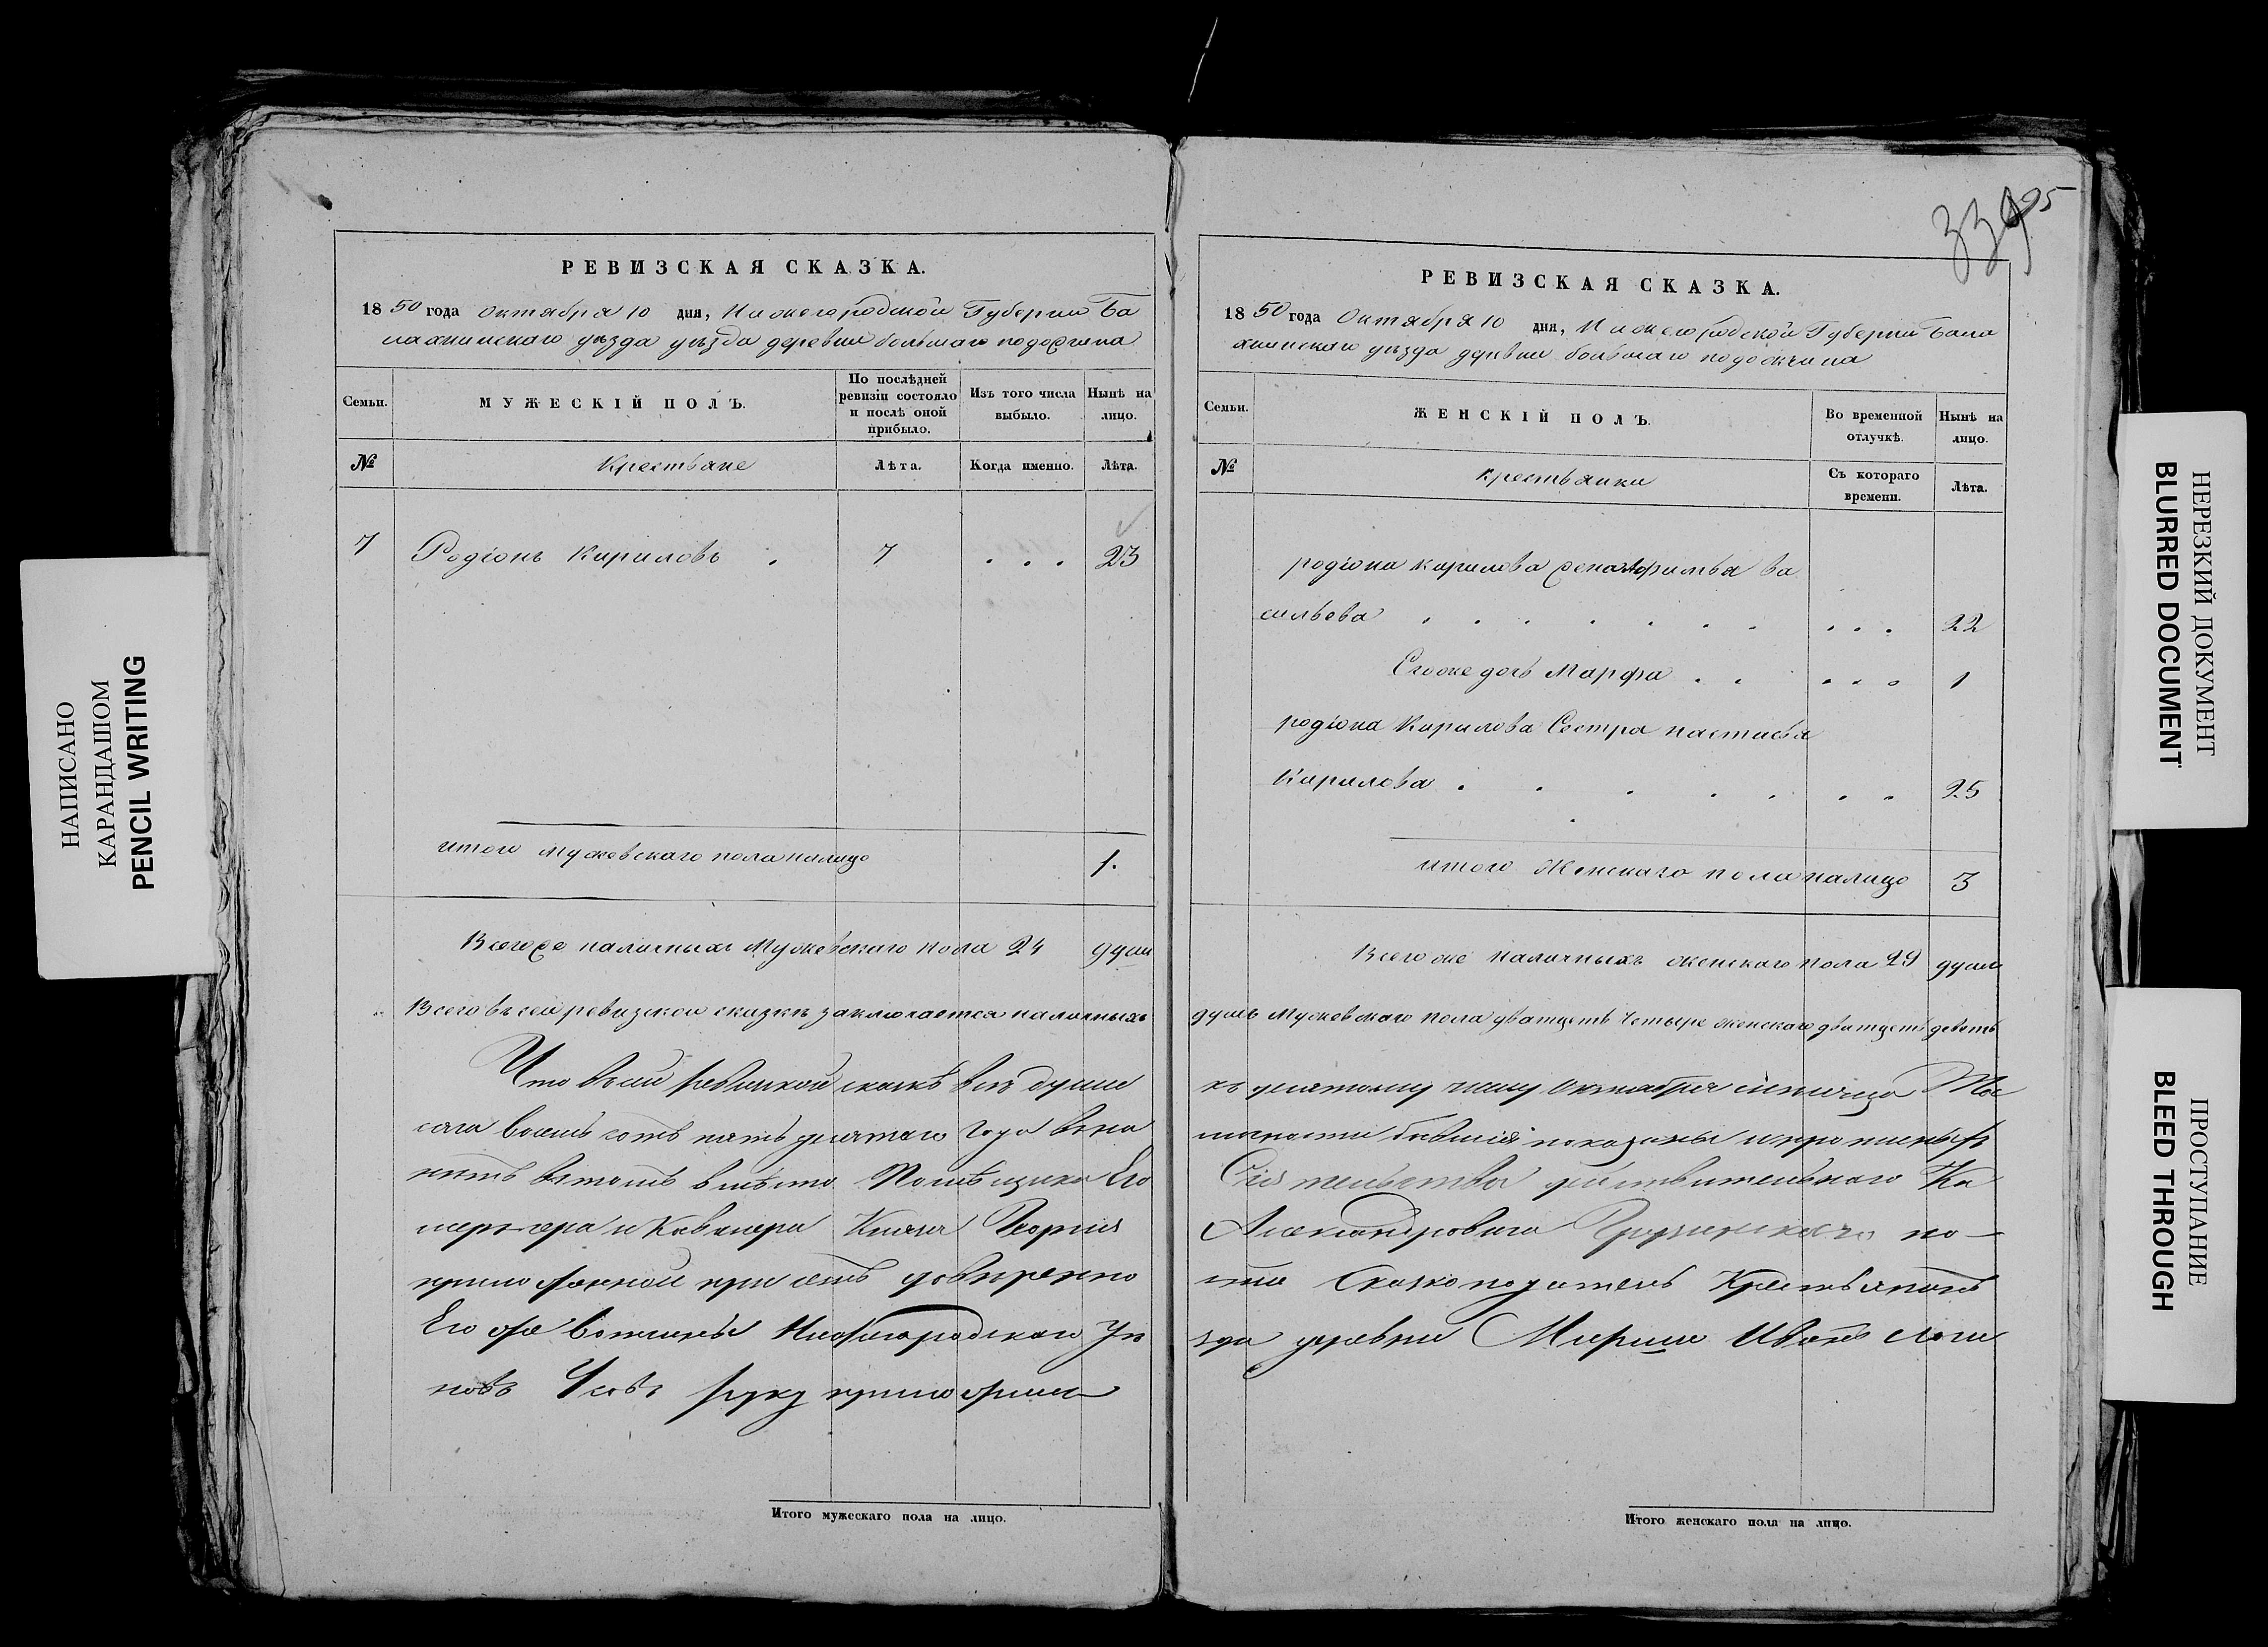 НАПИСАНО
КАРАНДАШОМ
PENCIL WRITING
РЕВИЗСКАЯ СКАЗКА.
1850 года Октября 10 дня, Нижегородской Губернии Ба
лахнинскаго уѣзда уѣзда деревни большаго подосжина
Семьи.
МУЖЕСКІЙ ПОЛЪ.
По послѣдней ревизіи состояло и послѣ оной прибыло.
Изъ того числа выбыло.
Нынѣ на лицо.
№
Крестьяне
Лѣта.
Когда именно.
Лѣта.
7 Родіонъ Кириловъ . 7 . . . 23
итого мужевскаго пола налицо 1.
Всегоже наличныхъ мужевскаго пола 24 душ
Всего въ сей ревизской сказкѣ заключается наличныхъ
Что въ сей ревизской сказкѣ всѣ души
сяча восемь сотъ пятьдесятаго года
нитъ въ томъ вмѣсто Помѣщика Его
мергера и Кавалера Князя Георгия
приложенной при семъ довѣренно
Его же вотчины Нижегородскаго Уѣ
новъ руку приложилъ
Итого мужескаго пола на лицо.
339 95
РЕВИЗСКАЯ СКАЗКА.
1850 года Октября 10 дня, Нижегородской Губернии Бала
хнинскаго уѣзда деревни большаго подосжина
Семьи.
ЖЕНСКІЙ ПОЛЪ.
Во временной отлучкѣ.
Нынѣ на лицо.
№
Крестьянки
Съ котораго времени.
Лѣта.
родіона кирилова жена Афимья ва
сильева . . . . . . . . . . 22
Егоже дочь Марфа . . . . . 1
родіона Кирилова Сестра настасья
Кирилова . . . . . . . 25
итого Женскаго пола налицо 3
Всего же наличныхъ женскаго пола 29 душъ
душъ мужевскаго пола дватцеть четыре женскаго дватцеть деветь
къ десятому числу Октября мѣсяца Ты
личности бывшія показаны и
Сіятельства дѣйствительнаго Ка
Александровича Грузинскаго по
сти Сказкоподатель Крестьянинъ
зда деревни Иванъ Логи
Итого женскаго пола на лицо.
НЕРЕЗКИЙ ДОКУМЕНТ
BLURRED DOCUMENT
ПРОСТУПАНИЕ
BLEED THROUGH